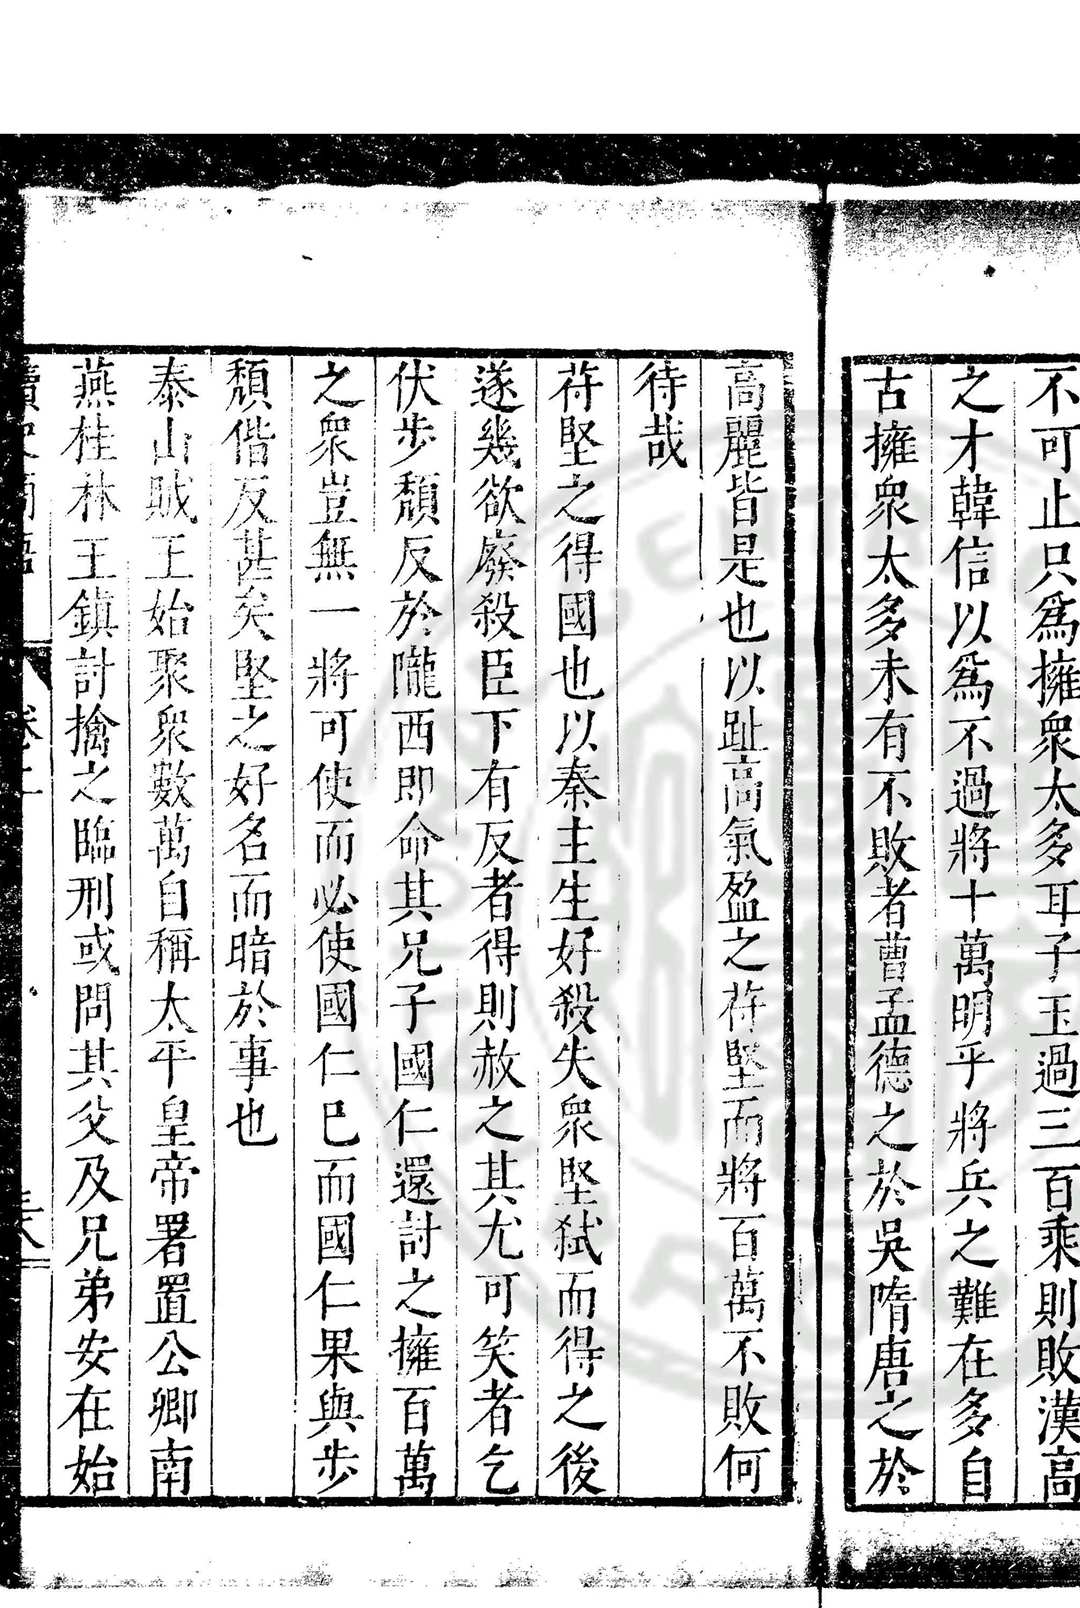 不可止只爲擁衆太多耳子玉過三百乘則敗漢高
之才韓信以爲不過將十萬明乎將兵之難在多自
古擁衆太多未有不敗者曹孟德之於吳隋唐之於
高麗皆是也以趾高氣盈之苻堅而將百萬不敗何
待哉
苻堅之得國也以秦主生好殺失衆堅弑而得之後
遂幾欲廢殺臣下有反者得則赦之其尤可笑者乞
伏步頹反於隴西即命其兄子國仁還討之擁百萬
之衆豈無一將可使而必使國仁巳而國仁果與步
頹偕反甚矣堅之好名而暗於事也
泰山賊王始聚衆數萬自稱太平皇帝署置公卿南
燕桂林王鎮討擒之臨刑或問其父及兄弟安在始
卷二